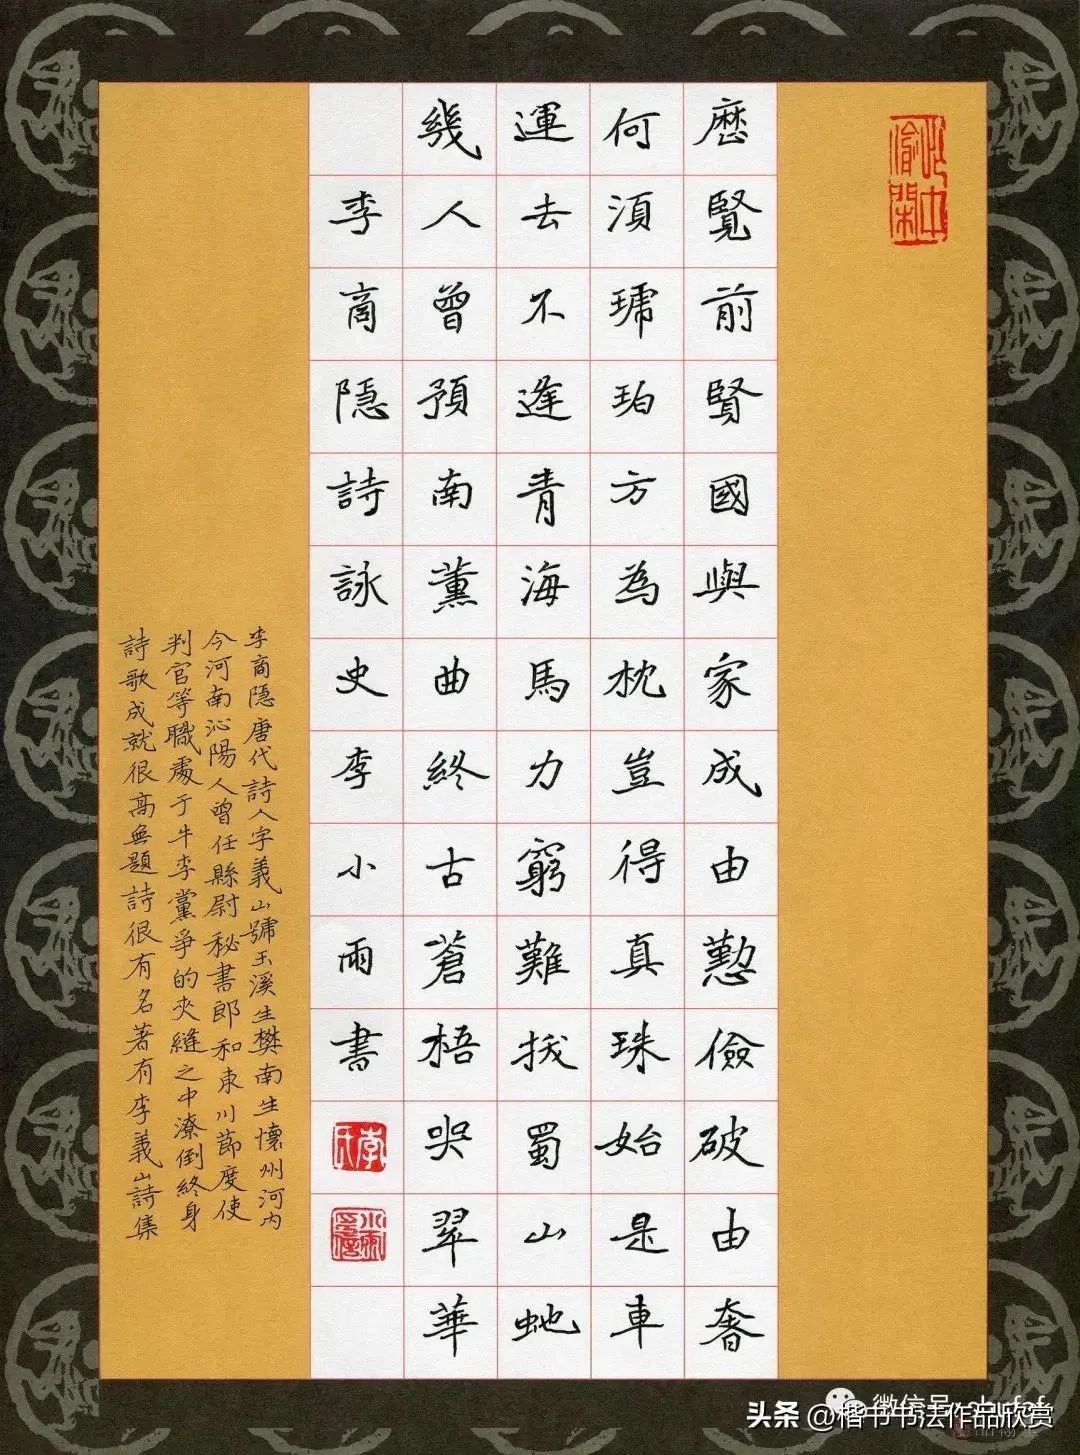 歷覽前賢國與家成由勤儉破由奢
何須琥珀方為枕豈得真珠始是車
運去不逢青海馬力窮難拔蜀山虵
幾人曾預南薰曲終古蒼梧哭翠華
李商隱詩詠史李小雨書
李商隱唐代詩人字義山號玉溪生樊南生懷州河内
今河南沁陽人曾任縣尉秘書郎和東川節度使
判官等職處于牛李黨爭的夾縫之中潦倒終身
詩歌成就很高無題詩很有名著有李義山詩集
头条@楷书书法作品欣赏